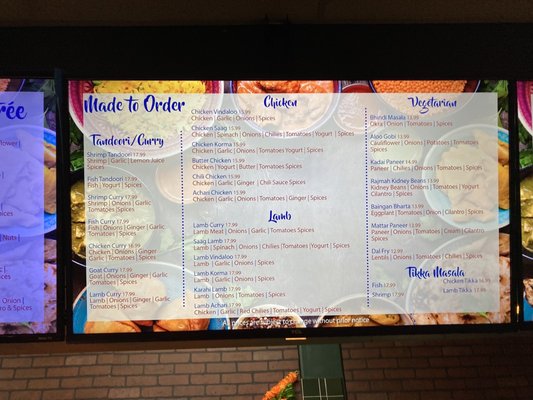 rée
Made to Order
Tandoori/Curry
Shrimp Tandoori 17.99
Shrimp | Garlic | Lemon Juice
Spices
Fish Tandoori 17.99
Fish | Yogurt | Spices
Shrimp Curry 17.99
Shrimp | Onions | Garlic
Tomatoes |Spices
Fish Curry 17.99
Fish | Onions | Ginger
Tomatoes | Spices
Chicken Curry 16.99
Chicken | Onions | Ginger
Garlic | Tomatoes | Spices
Goat Curry 17.99
Goat | Onions | Ginger
Garlic | Tomatoes | Spices
Lamb Curry 17.99
Lamb | Onions | Ginger
Garlic | Tomatoes | Spices
Chicken
Chicken Vindaloo 15.99
Chicken | Garlic | Onions | Spices
Chicken Saag 15.99
Chicken | Spinach | Onions | Chilies | Tomatoes | Yogurt | Spices
Chicken Korma 15.99
Chicken | Garlic | Onions | Tomatoes Yogurt | Spices
Butter Chicken 15.99
Chicken | Yogurt | Butter | Tomatoes Spices
Chili Chicken 15.99
Chicken | Garlic | Ginger | Chili Sauce Spices
Achari Chicken 15.99
Chicken | Garlic | Onions | Tomatoes | Ginger | Spices
Lamb
Lamb Curry 17.99
Lamb Meat | Onions | Garlic | Tomatoes | Spices
Saag Lamb 17.99
Lamb | Spinach | Onions | Chilies |Tomatoes Yogurt | Spices
Lamb Vindaloo 17.99
Lamb | Garlic | Onions | Spices
Lamb Korma 17.99
Lamb | Garlic | Onions | Spices
Karahi Lamb 17.99
Lamb | Onions | Tomatoes | Spices
Lamb Achari 17.99
Chicken | Garlic | Red Chilies | Tomatoes | Yogurt | Spices
Vegetarian
Bhindi Masala 13.99
Okra | Onion | Tomatoes | Spices
Aloo Gobi 13.99
Cauliflower | Onions | Potatoes
Tomatoes | Spices
Kadai Paneer 14.99
Paneer | Chilies | Onions | Tomatoes | Spices
Rajmah Kidney Beans 13.99
Kidney Beans | Onions | Tomatoes | Yogurt
Cilantro | Spices
Baingan Bharta 13.99
Eggplant | Tomatoes | Onion | Cilantro | Spices
Mattar Paneer 13.99
Paneer | Onions | Tomatoes | Cream | Cilantro
Spices
Dal Fry 12.99
Lentils | Onions | Tomatoes | Chilies | Spices
Tikka Masala
Chicken Tikka 16.99
Fish 17.99
Lamb Tikka 17.99
Shrimp 17.99
All prices are subject to change without prior notice